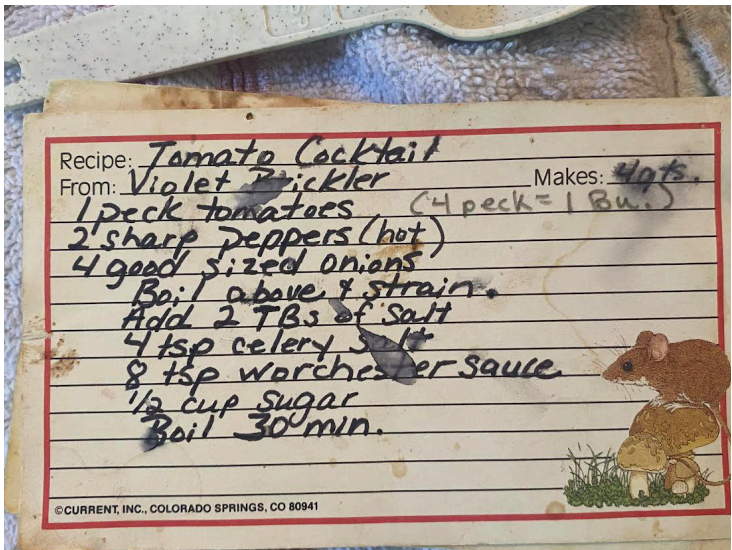 Recipe: Tomato Cocktail
From: Violet Makes: 4 qts.
1 peck tomatoes (4 peck = 1 Bu.)
2 sharp peppers (hot)
4 good sized onions
Boil above & strain.
Add 2 TBs of salt
4 tsp celery salt
8 tsp worchester sauce
1/2 cup sugar
Boil 30 min.
©CURRENT, INC., COLORADO SPRINGS, CO 80941